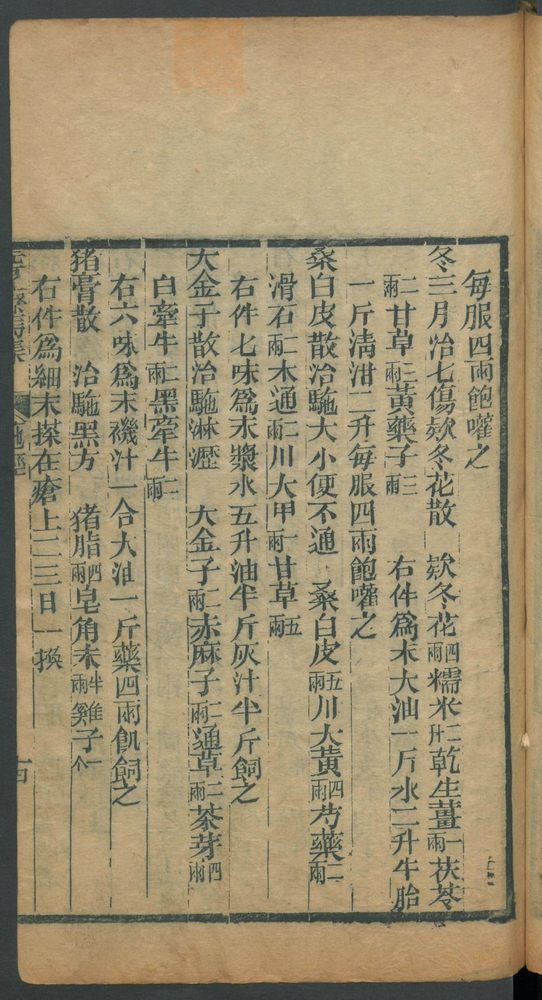 每服四兩飽嚾之
冬三月治七傷欵冬花散　欵冬花四兩糯米二升乾生薑一兩茯苓
二兩甘草三兩黃藥子三兩　右件為末大油一斤水二升牛胎
一斤淸泔二升每服四兩飽嚾之
桑白皮散治駞大小便不通　桑白皮五兩川大黃四兩芍藥二兩
滑石二兩木通二兩川大甲一兩甘草五兩
右件七味為末漿水五升油半斤灰汁半斤飼之
大金子散治駞淋瀝　大金子二兩赤麻子二兩通草二兩茶芽四兩
白牽牛二兩黑牽牛二兩
右六味為末禨汁一合大油一斤藥四兩飢飼之
猪膏散　治駞黑方　猪脂四兩皂角末半兩雞子一个
右件為細末搽在瘡上二三日一換
駞經
十四